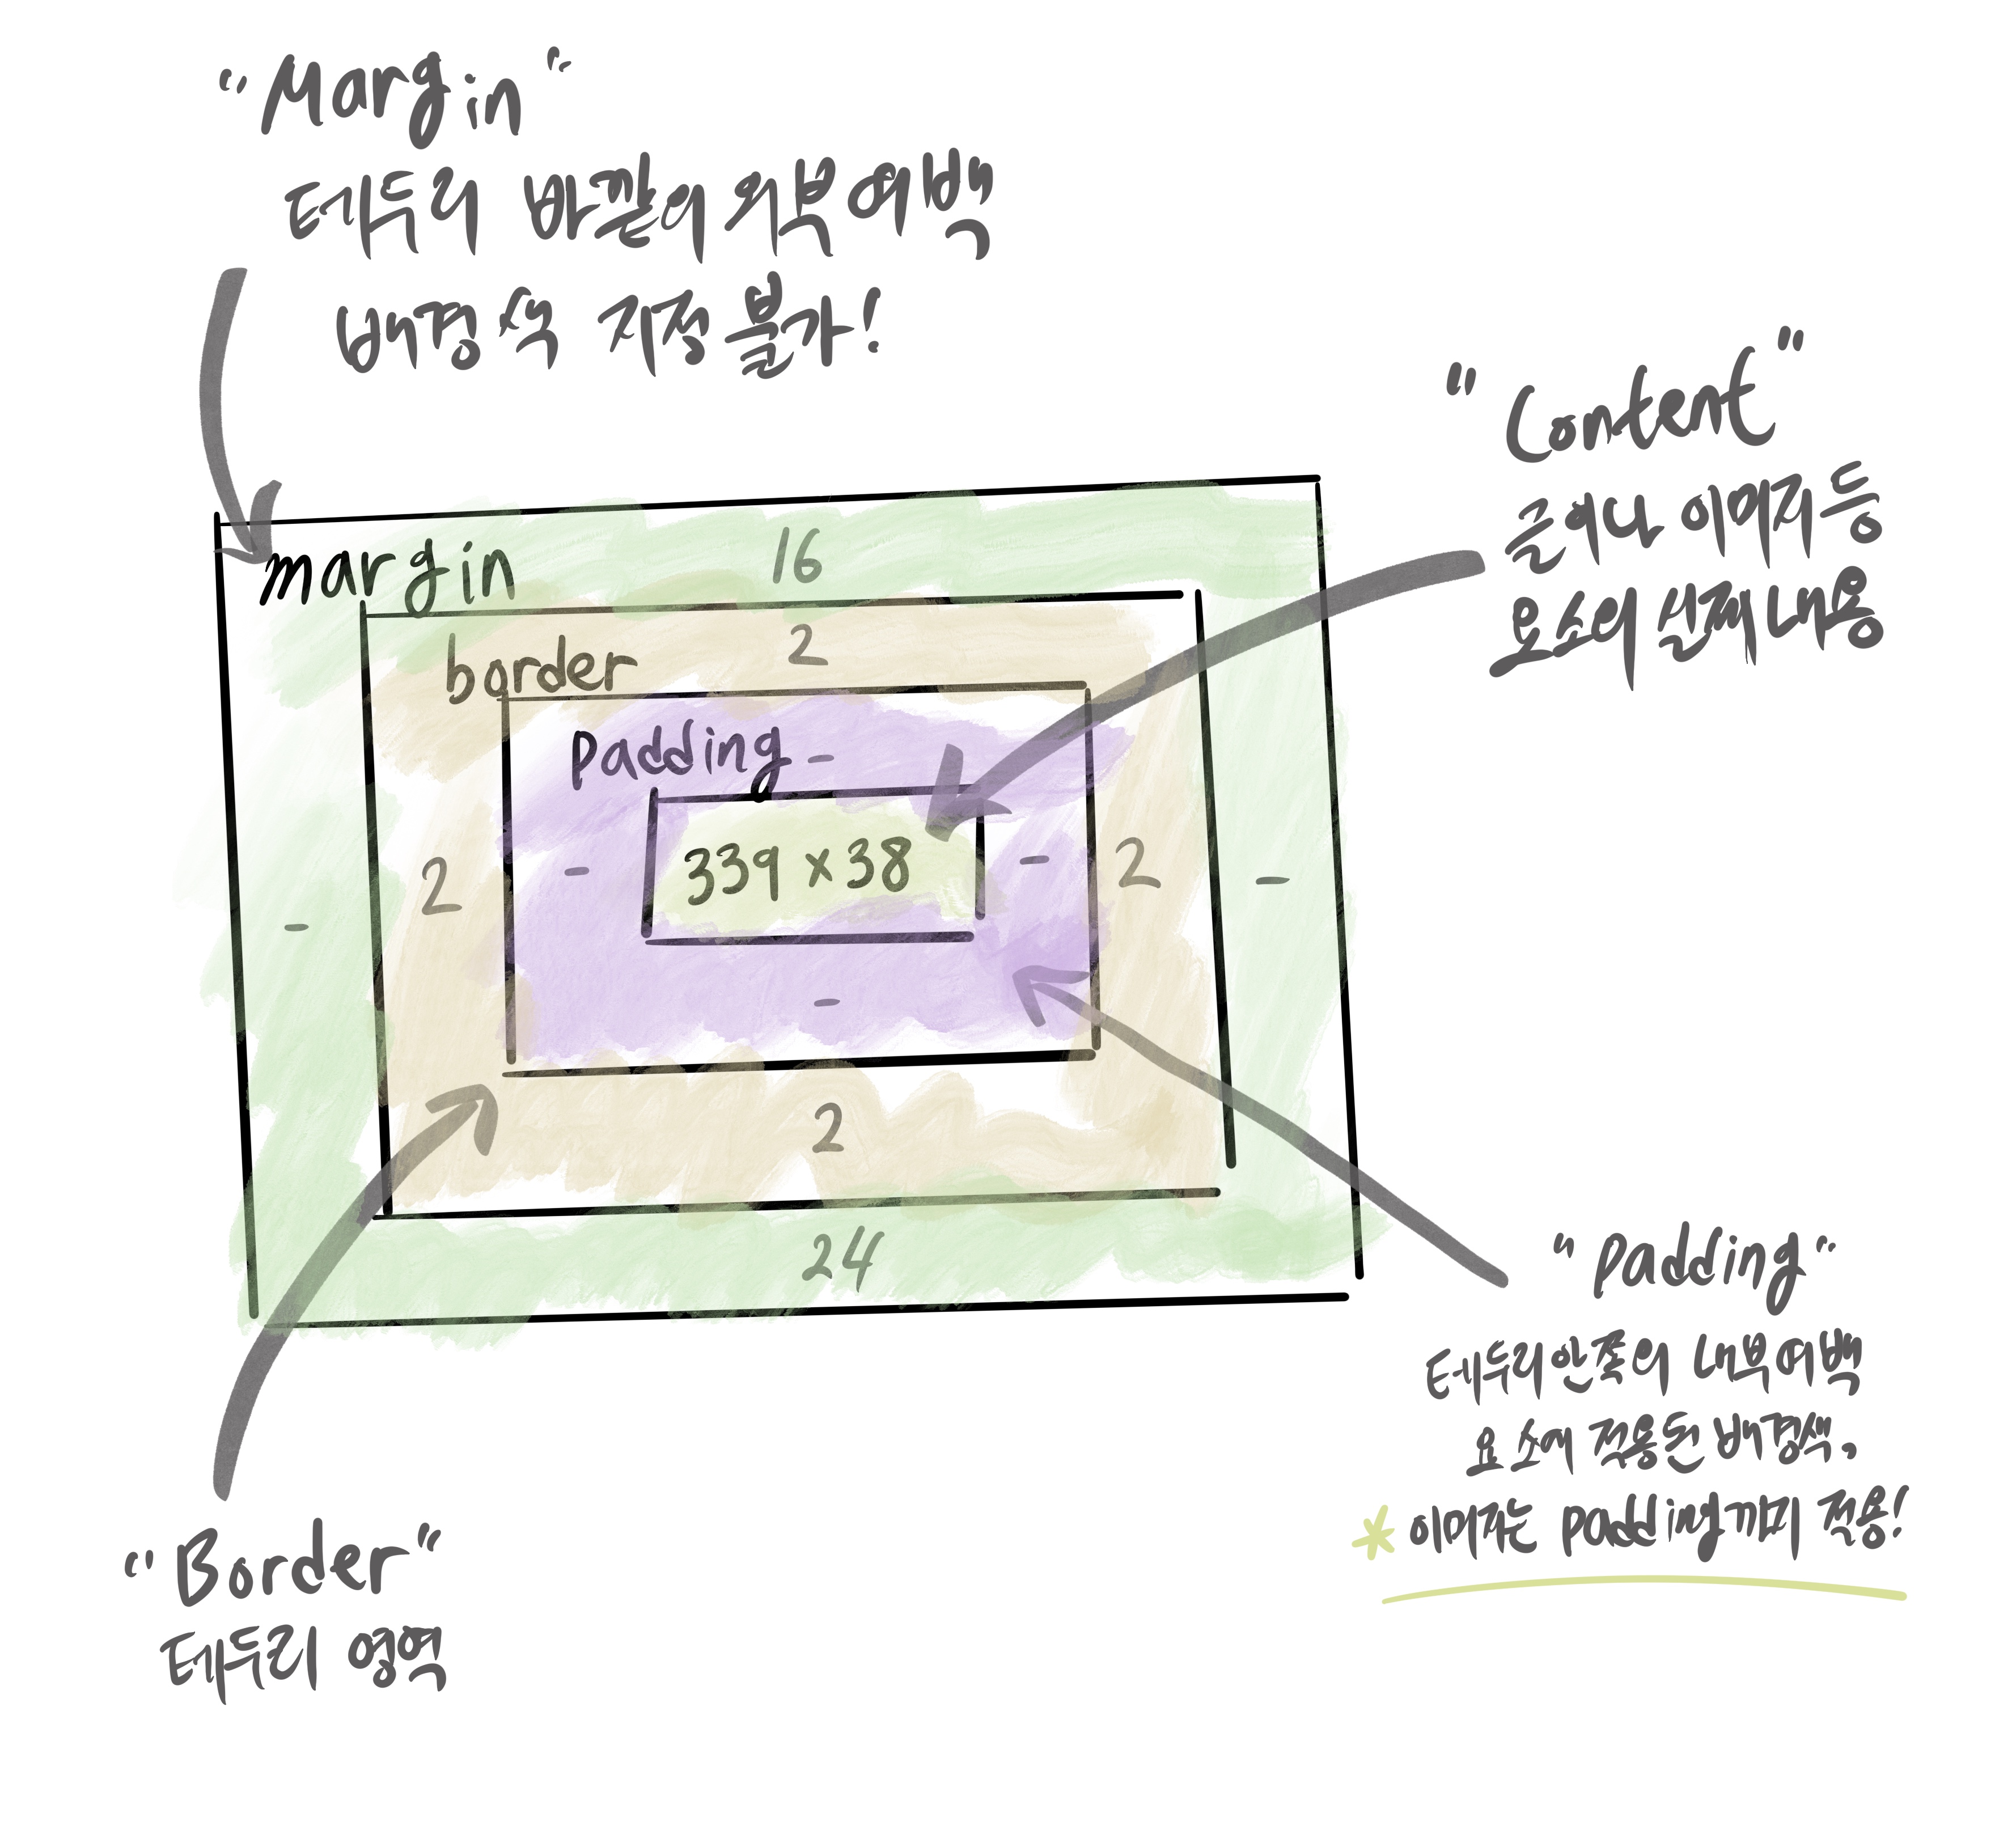 "Margin"
테두리 바깥의 외부여백
배경색 지정 불가!
"Content"
글이나 이미지 등
요소의 실제 내용
margin 16
border 2
padding -
- 2 - 339 x 38 - 2 -
-
2
24
"padding"
테두리 안쪽의 내부여백
요소에 적용된 배경색,
* 이미지는 padding까지 적용!
"Border"
테두리 영역